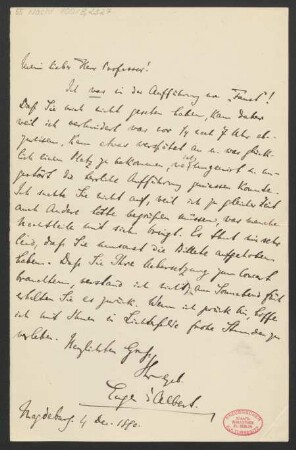 Mein lieber Herr Professor!
Ich war in der Aufführung von „Faust“!
Daß Sie mich nicht gesehen haben, kam daher
weil ich verhindert war vor 1/4 auf 7 Uhr ab-
zureisen, kam etwas verspätet an u. war glück-
lich einen Platz zu bekommen, wo ich ungenirt u. un-
gestört die herrliche Aufführung geniessen konnte.
Ich suchte Sie nicht auf, weil ich zu gleicher Zeit
auch Andere hätte begrüßen müssen, was manche
Nachtheile mit sich bringt. Es thut mir sehr
leid, daß Sie umsonst die Billete aufgehoben
haben. Daß Sie Ihre Uebersetzung zum Concert
brauchten, verstand ich nicht; am Sonnabend früh
erhalten Sie es zurück. Wenn ich zurück bin, hoffe
ich mit Ihnen in Lichterfelde frohe Stunden zu
verleben. Herzlichsten Gruß
Ihr ergeb.
Eugen d'Albert.
Magdeburg, 4 Dec. 1890.